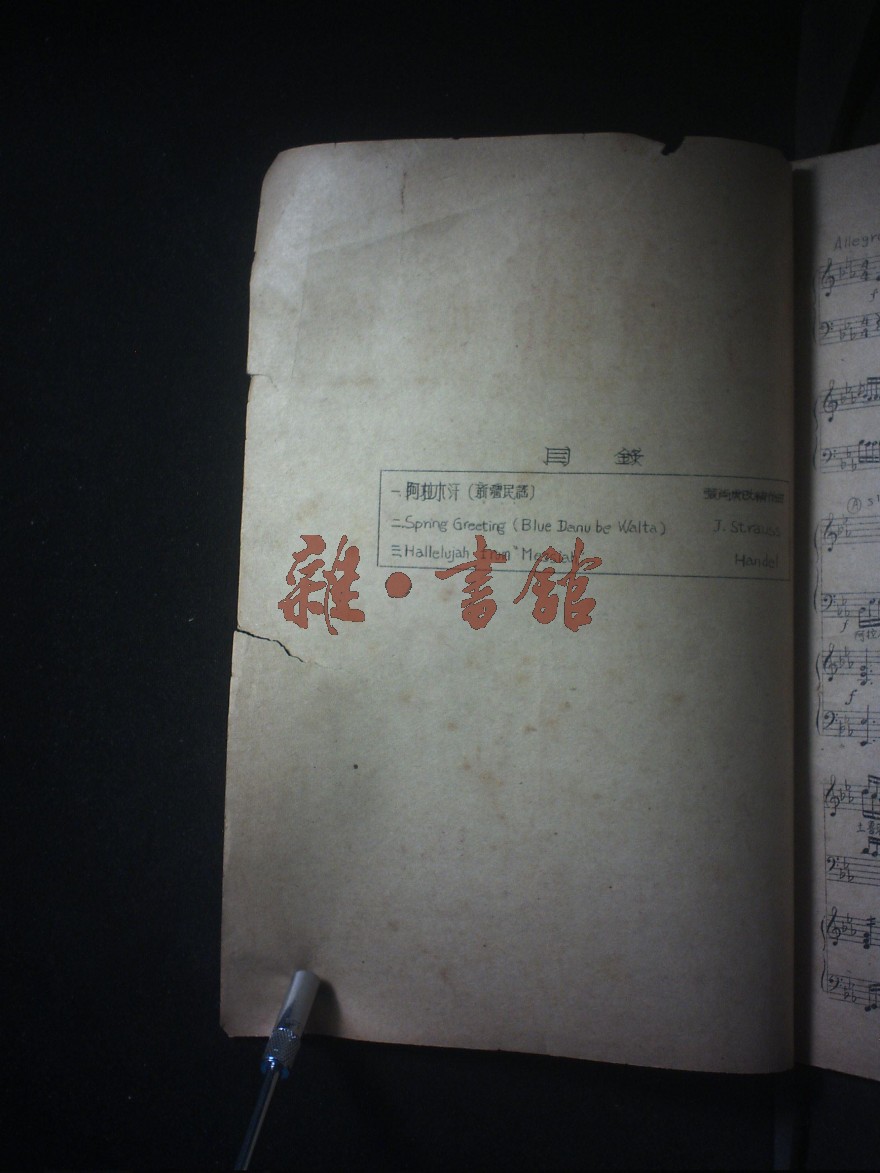 目 錄
一. 阿拉木汗 (新疆民謠)
二. Spring Greeting (Blue Danube Walta) J. Strauss
三. Hallelujah from "Messiah Handel
雜·書館
Allegr
f
A
f
f